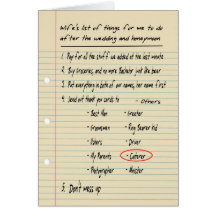 Wife's list of things for me to do
after the wedding and honeymoon
1. Pay for all the stuff we added at the last minute
2. Buy Groceries, and no more Bachelor food like beer
3. Put everything in both of our names, her name first
4. Send out thank you cards to
- Others
- Best Man
- Greeter
- Groomsmen
- Ring Bearer Kid
- Ushers
- Driver
- My Parents
- Caterer
- Photographer
- Minister
5. Don't mess up